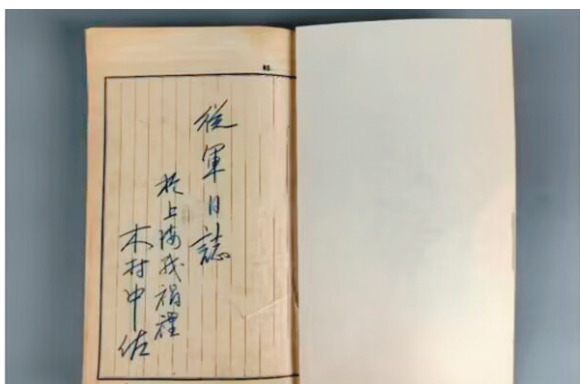 従軍日誌
於上海戦禍裡
木村中佐